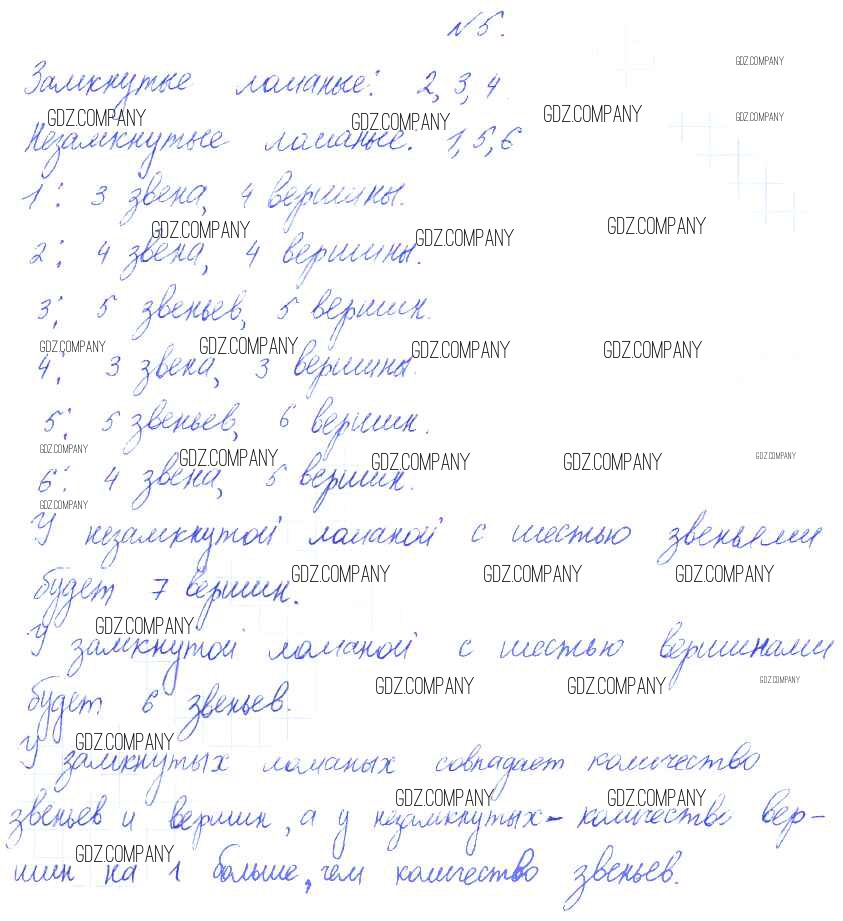 №5.
GDZ.COMPANY
Замкнутые ломаные: 2, 3, 4
GDZ.COMPANY GDZ.COMPANY GDZ.COMPANY GDZ.COMPANY
Незамкнутые ломаные: 1, 5, 6
1: 3 звена, 4 вершины.
GDZ.COMPANY GDZ.COMPANY GDZ.COMPANY
2: 4 звена, 4 вершины.
3: 5 звеньев, 5 вершин.
GDZ.COMPANY GDZ.COMPANY GDZ.COMPANY GDZ.COMPANY
4: 3 звена, 3 вершины.
5: 5 звеньев, 6 вершин.
GDZ.COMPANY GDZ.COMPANY GDZ.COMPANY GDZ.COMPANY GDZ.COMPANY
6: 4 звена, 5 вершин.
GDZ.COMPANY
У незамкнутой ломаной с шестью звеньями
GDZ.COMPANY GDZ.COMPANY GDZ.COMPANY
будет 7 вершин.
GDZ.COMPANY
У замкнутой ломаной с шестью вершинами
GDZ.COMPANY GDZ.COMPANY GDZ.COMPANY
будет 6 звеньев.
GDZ.COMPANY
У замкнутых ломаных совпадает количество
GDZ.COMPANY GDZ.COMPANY
звеньев и вершин, а у незамкнутых - количество вер-
GDZ.COMPANY
шин на 1 больше, чем количество звеньев.